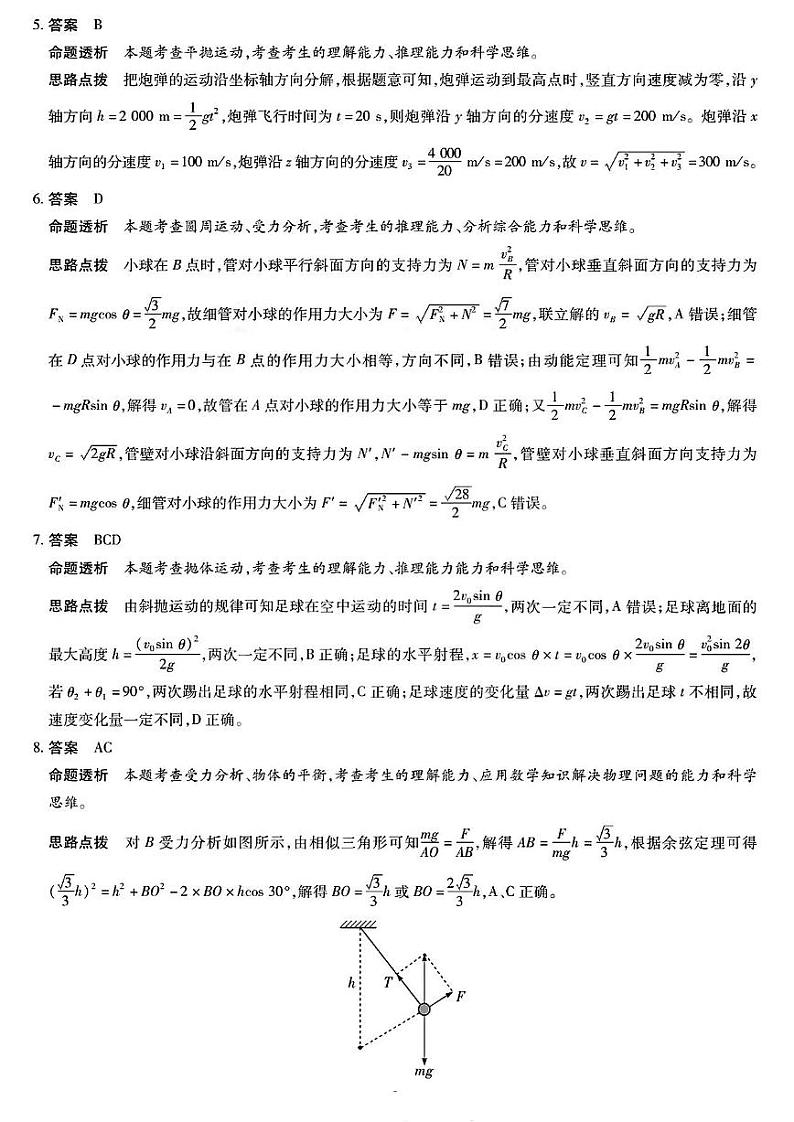 5. 答案 B
命题透析 本题考查平抛运动,考查考生的理解能力、推理能力和科学思维。
思路点拨 把炮弹的运动沿坐标轴方向分解,根据题意可知,炮弹运动到最高点时,竖直方向速度减为零,沿 y
轴方向 h = 2 000 m = \frac{1}{2}gt^2,炮弹飞行时间为 t = 20 s,则炮弹沿 y 轴方向的分速度 v_2 = gt = 200 m/s。炮弹沿 x
轴方向的分速度 v_1 = 100 m/s,炮弹沿 z 轴方向的分速度 v_3 = \frac{4 000}{20} m/s = 200 m/s,故 v = \sqrt{v_1^2 + v_2^2 + v_3^2} = 300 m/s。
6. 答案 D
命题透析 本题考查圆周运动、受力分析,考查考生的推理能力、分析综合能力和科学思维。
思路点拨 小球在 B 点时,管对小球平行斜面方向的支持力为 N = m\frac{v_B^2}{R},管对小球垂直斜面方向的支持力为
F_N = mgcos θ = \frac{\sqrt{3}}{2}mg,故细管对小球的作用力大小为 F = \sqrt{F_N^2 + N^2} = \frac{\sqrt{7}}{2}mg,联立解的 v_B = \sqrt{gR},A 错误;细管
在 D 点对小球的作用力与在 B 点的作用力大小相等,方向不同,B 错误;由动能定理可知\frac{1}{2}mv_A^2 - \frac{1}{2}mv_B^2 =
-mgRsin θ,解得 v_A = 0,故管在 A 点对小球的作用力大小等于 mg,D 正确;又\frac{1}{2}mv_C^2 - \frac{1}{2}mv_B^2 = mgRsin θ,解得
v_C = \sqrt{2gR},管壁对小球沿斜面方向的支持力为 N′,N′ - mgsin θ = m\frac{v_C^2}{R},管壁对小球垂直斜面方向支持力为
F′_N = mgcos θ,细管对小球的作用力大小为 F′ = \sqrt{F′_N^2 + N′^2} = \frac{\sqrt{28}}{2}mg,C 错误。
7. 答案 BCD
命题透析 本题考查抛体运动,考查考生的理解能力、推理能力能力和科学思维。
思路点拨 由斜抛运动的规律可知足球在空中运动的时间 t = \frac{2v_0sin θ}{g},两次一定不同,A 错误;足球离地面的
最大高度 h = \frac{(v_0sin θ)^2}{2g},两次一定不同,B 正确;足球的水平射程,x = v_0cos θ × t = v_0cos θ × \frac{2v_0sin θ}{g} = \frac{v_0^2sin 2θ}{g},
若 θ_2 + θ_1 = 90°,两次踢出足球的水平射程相同,C 正确;足球速度的变化量 Δv = gt,两次踢出足球 t 不相同,故
速度变化量一定不同,D 正确。
8. 答案 AC
命题透析 本题考查受力分析、物体的平衡,考查考生的理解能力、应用数学知识解决物理问题的能力和科学
思维。
思路点拨 对 B 受力分析如图所示,由相似三角形可知\frac{mg}{AO} = \frac{F}{AB},解得 AB = \frac{F}{mg}h = \frac{\sqrt{3}}{3}h,根据余弦定理可得
(\frac{\sqrt{3}}{3}h)^2 = h^2 + BO^2 - 2 × BO × hcos 30°,解得 BO = \frac{\sqrt{3}}{3}h 或 BO = \frac{2\sqrt{3}}{3}h,A、C 正确。
h
T
F
mg